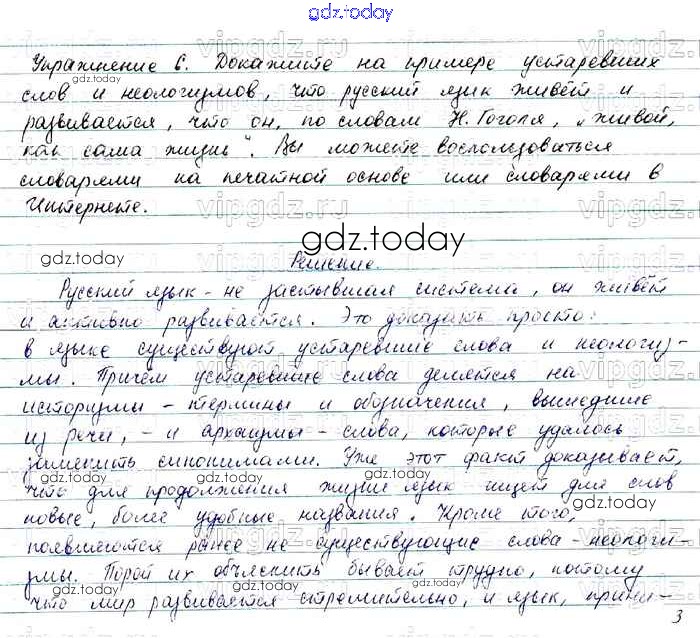 gdz.today
Упражнение 6. Докажите на примере устаревших
gdz.today
слов и неологизмов, что русский язык живёт и
развивается, что он, по словам Н. Гоголя, „живой,
как сама жизнь“. Вы можете воспользоваться
словарями на печатной основе или словарями в
Интернете.
gdz.today
gdz.today
gdz.today
Решение.
Русский язык - не застывшая система, он живёт
и активно развивается. Это доказать просто:
в языке существуют устаревшие слова и неологиз-
мы. Причём устаревшие слова делятся на
историзмы - термины и обозначения, вышедшие
из речи, - и архаизмы - слова, которые удалось
заменить синонимами. Уже этот факт доказывает,
что для продолжения жизни язык ищет для слов
новые, более удобные названия. Кроме того,
появляются ранее не существующие слова - неологи-
змы. Порой их объяснить бывает трудно, потому
что мир развивается стремительно, и язык, прини-
3